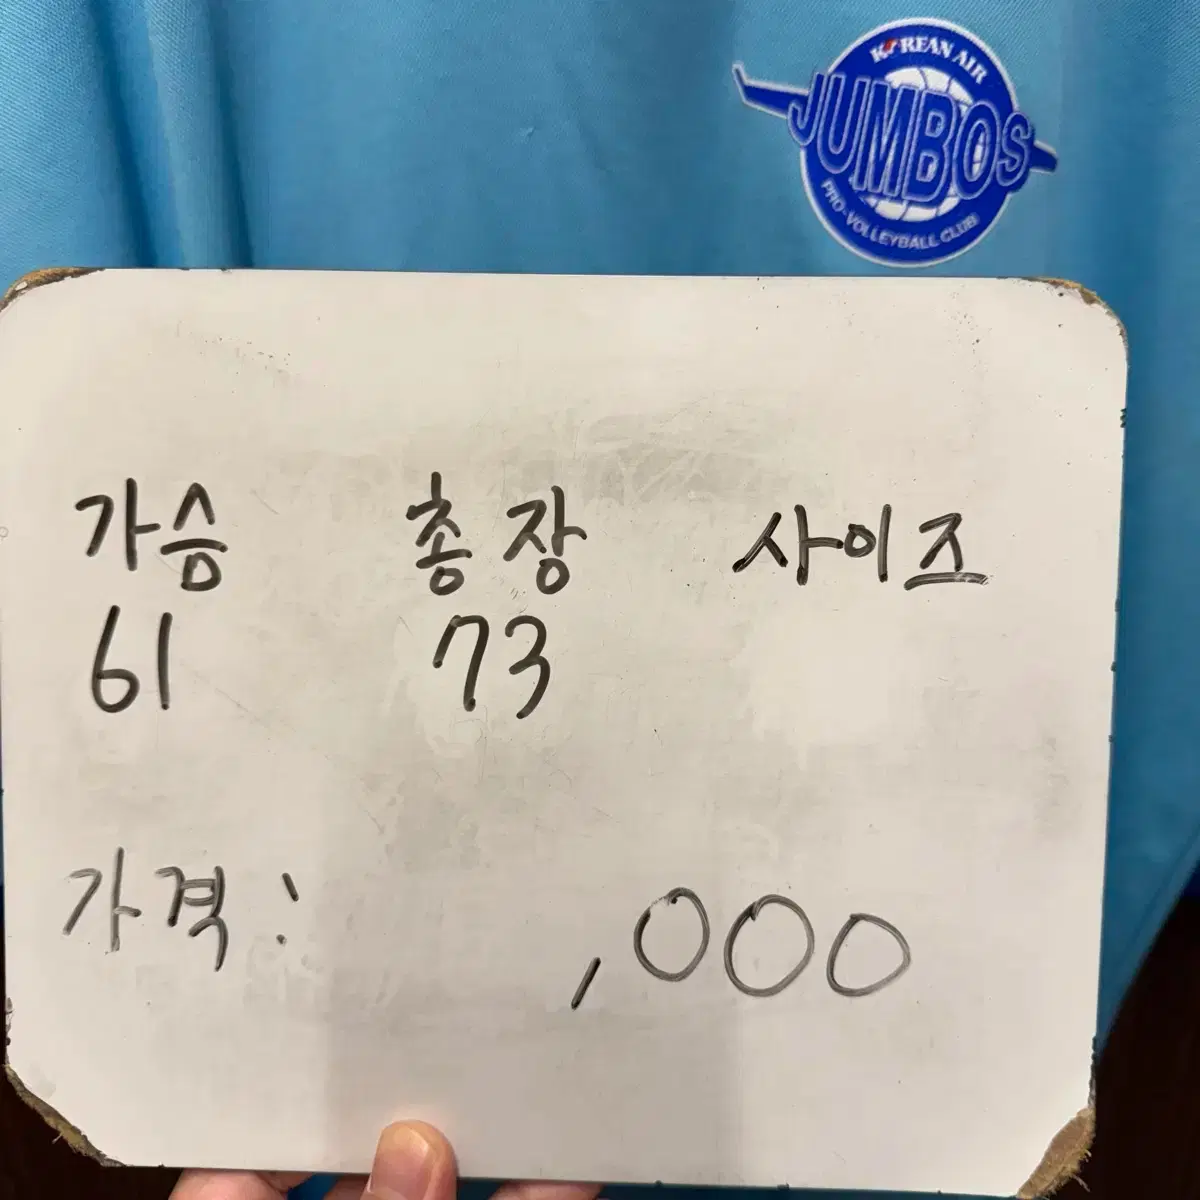 KOREAN AIR
JUMBOS
PRO-VOLLEYBALL CLUB
가슴 총장 사이즈
61 73
가격: ,000